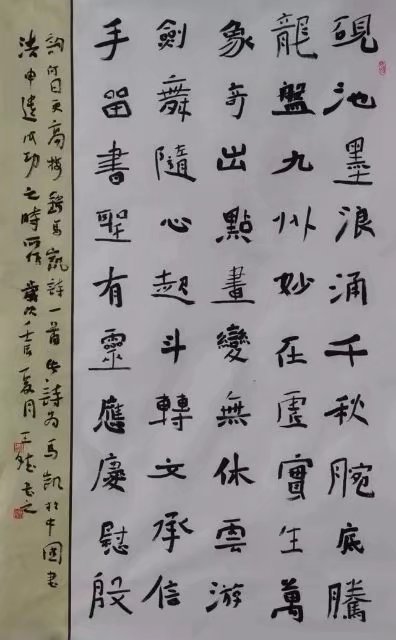 硯池墨浪涌千秋腕底騰
龍盤九州妙在虛實生萬
象奇出點畫變無休雲游
劍舞隨心起斗轉文承信
手留書聖有靈應慶慰殷
何日更高樓 錄馬凱詩一首 此詩為馬凱於中國書
法申遺成功之時所作 歲次壬辰夏月 王書之